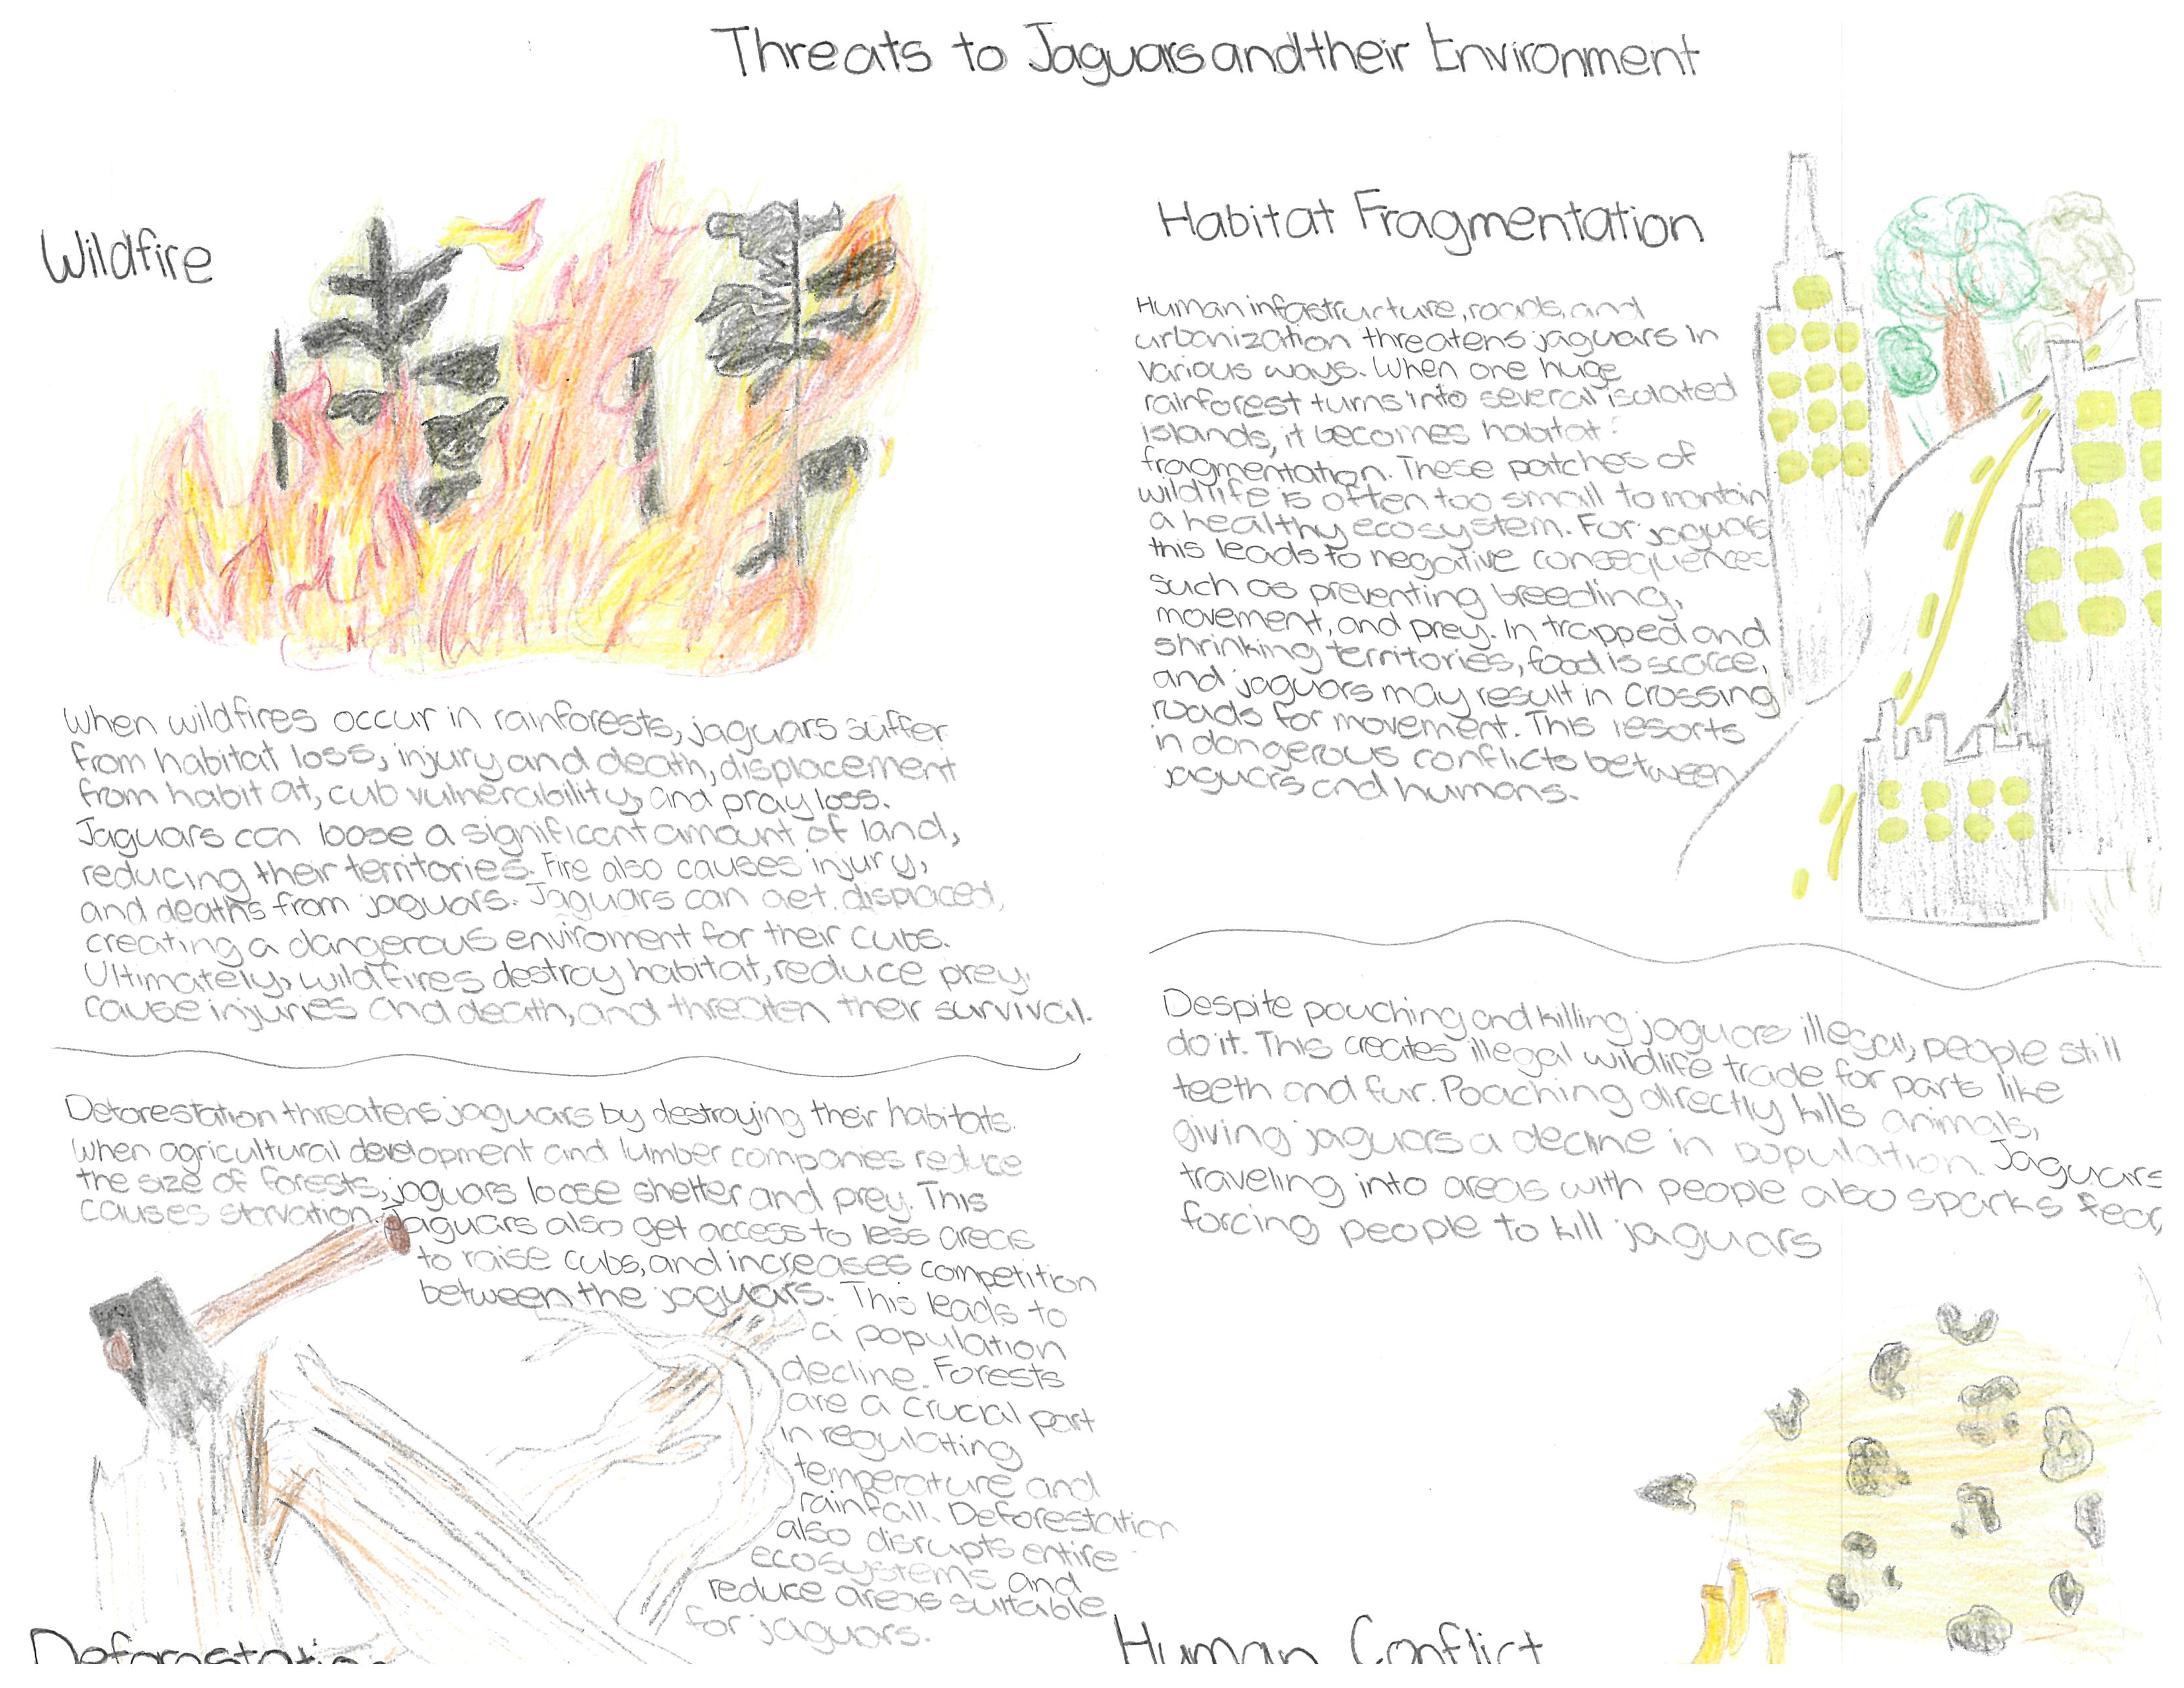 Threats to Jaguars and their Environment
Wildfire
When wildfires occur in rainforests, jaguars suffer
from habitat loss, injury and death, displacement
from habitat, cub vulnerability, and pray loss.
Jaguars can loose a significant amount of land,
reducing their territories. Fire also causes injury,
and deaths from jaguars. Jaguars can get displaced,
creating a dangerous enviroment for their cubs.
Ultimately, wildfires destroy habitat, reduce prey,
cause injuries and death, and threaten their survival.
Deforestation threatens jaguars by destroying their habitats.
When agricultural development and lumber companies reduce
the size of forests, jaguars loose shelter and prey. This
causes starvation. Jaguars also get access to less areas
to raise cubs, and increases competition
between the jaguars. This leads to
a population
decline. Forests
are a crucial part
in regulating
temperature and
rainfall. Deforestation
also disrupts entire
ecosystems and
reduce areas suitable
for jaguars.
Deforestation
Habitat Fragmentation
Human infastructure, roads, and
urbanization threatens jaguars in
various ways. When one huge
rainforest turns into several isolated
islands, it becomes habitat
fragmentation. These patches of
wildlife is often too small to mantain
a healthy ecosystem. For jaguars
this leads to negative consequences
such as preventing breeding,
movement, and prey. In trapped and
shrinking territories, food is scarce,
and jaguars may result in crossing
roads for movement. This resorts
in dangerous conflicts between
jaguars and humans.
Despite pouching and killing jaguars illegal, people still
do it. This creates illegal wildlife trade for parts like
teeth and fur. Poaching directly kills animals,
giving jaguars a decline in population. Jaguars
traveling into areas with people also sparks fear,
forcing people to kill jaguars
Human Conflict